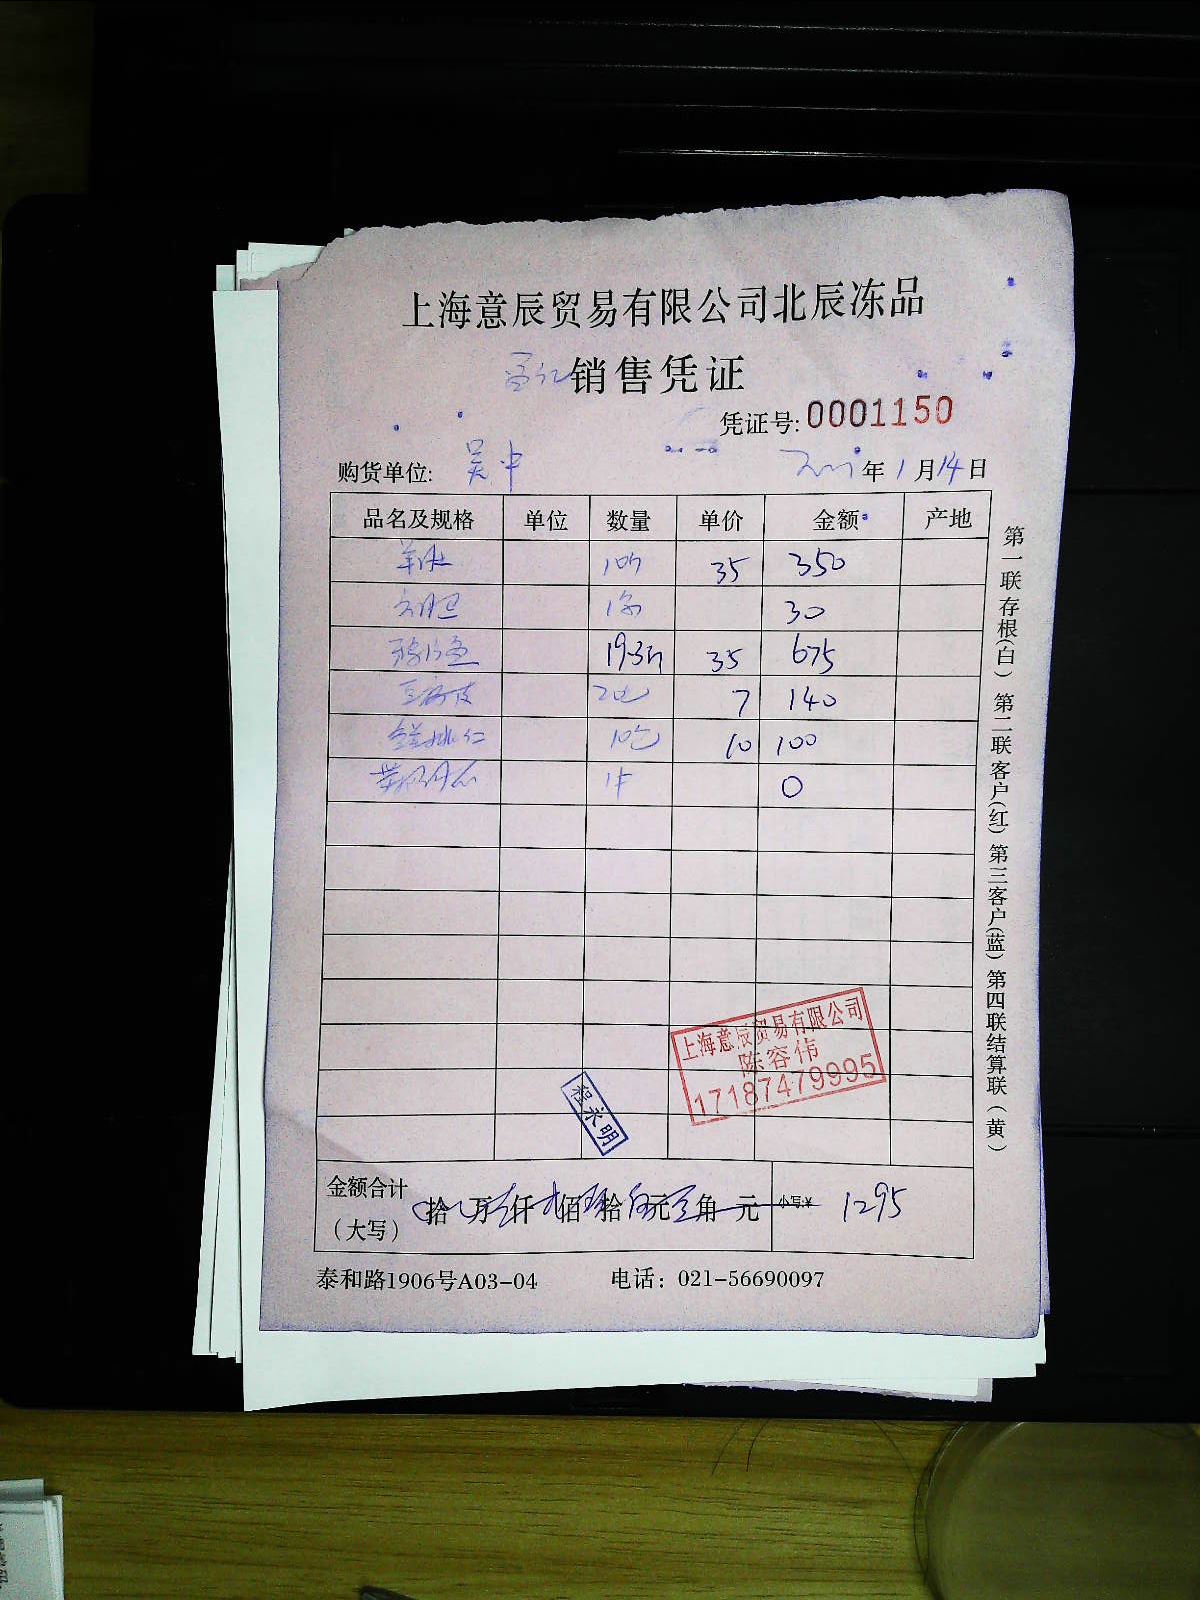 上海意辰贸易有限公司北辰冻品
销售凭证
凭证号: 0001150
购货单位: 吴中 年 1 月 14 日
品名及规格 单位 数量 单价 金额 产地
羊肚 10斤 35 350
30
19.3斤 35 675
豆腐皮 7 140
鲜桃仁 10包 10 100
0
上海意辰贸易有限公司
陈容伟
17187479995
程永明
金额合计
(大写) 拾 万 仟 佰 拾 元 角 元 小写:¥ 1295
泰和路1906号A03-04 电话: 021-56690097
第一联存根(白) 第二联客户(红) 第三客户(蓝) 第四联结算联(黄)